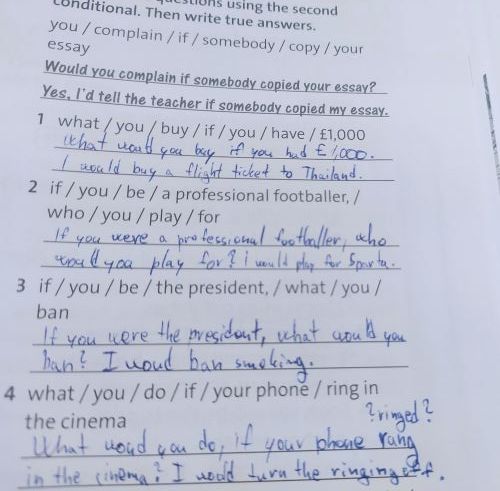 questions using the second
conditional. Then write true answers.
you / complain / if / somebody / copy / your
essay
Would you complain if somebody copied your essay?
Yes, I'd tell the teacher if somebody copied my essay.
1 what / you / buy / if / you / have / £1,000
What would you buy if you had £1,000.
I would buy a flight ticket to Thailand.
2 if / you / be / a professional footballer, /
who / you / play / for
If you were a professional footballer, who
would you play for? i would play for Sparta.
3 if / you / be / the president, / what / you /
ban
If you were the president, what would you
ban? I woud ban smoking.
4 what / you / do / if / your phone / ring in
the cinema
?ringed?
What woud you do, if your phone rang
in the cinema? I would turn the ringing off.